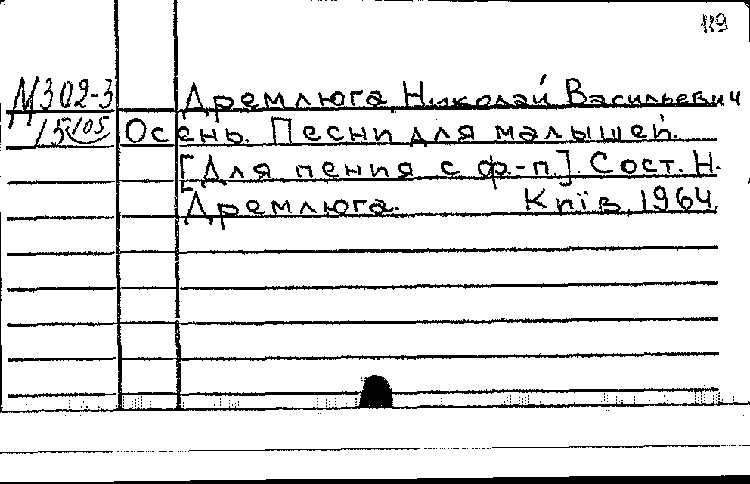 119
М302-3 Дремлюга, Николай Васильевич
15105 Осень. Песни для малышей.
[Для пения с ф.-п.]. Сост. Н.
Дремлюга. Київ, 1964.